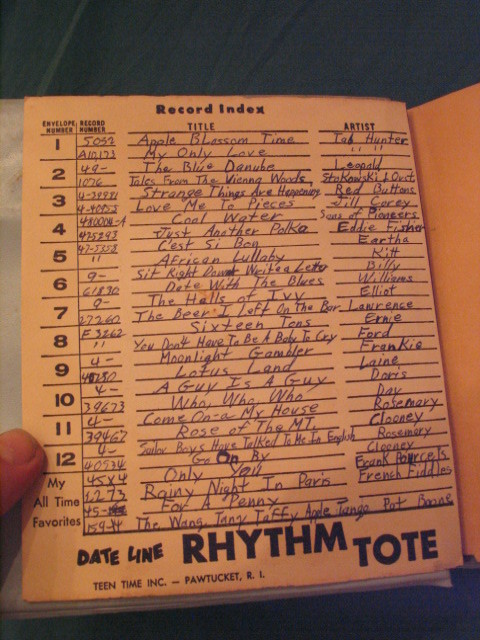 Record Index
ENVELOPE NUMBER RECORD NUMBER TITLE ARTIST
1 5032 Apple Blossom Time Tab Hunter
A10,173 My Only Love " " "
2 49- The Blue Danube Leopold
1076 Tales From The Vienna Woods Stokowski & Orct.
3 Strange Things Are Happening Red Buttons
4-40955 Love Me To Pieces Jill Corey
4 Cool Water Sons of Pioneers
Just Another Polka Eddie Fisher
5 47-5358 C'est Si Bon Eartha
" African Lullaby Kitt
6 9- Sit Right Down Write a Letter Billy
61830 Date With The Blues Williams
7 9- The Halls of Ivy Elliot
27260 The Beer I Left On The Bar Lawrence
8 F3262 Sixteen Tons Ernie
" You Don't Have To Be A Baby To Cry Ford
9 4- Moonlight Gambler Frankie
Lotus Land Laine
10 4- A Guy Is A Guy Doris
39673 Who, Who, Who Day
11 4- Come On-a My House Rosemary
39467 Rose of The MT. Clooney
12 4- Sailor Boys Have Talked To Me In English Rosemary
40534 Go On By Clooney
My All Time Favorites 45x4 Only You Frank Pourcels
1273 Rainy Night In Paris French Fiddles
45- For A Penny
159-4 The Wang, Tang Taffy Apple Tango Pat Boone
DATE LINE RHYTHM TOTE
TEEN TIME INC. — PAWTUCKET, R. I.